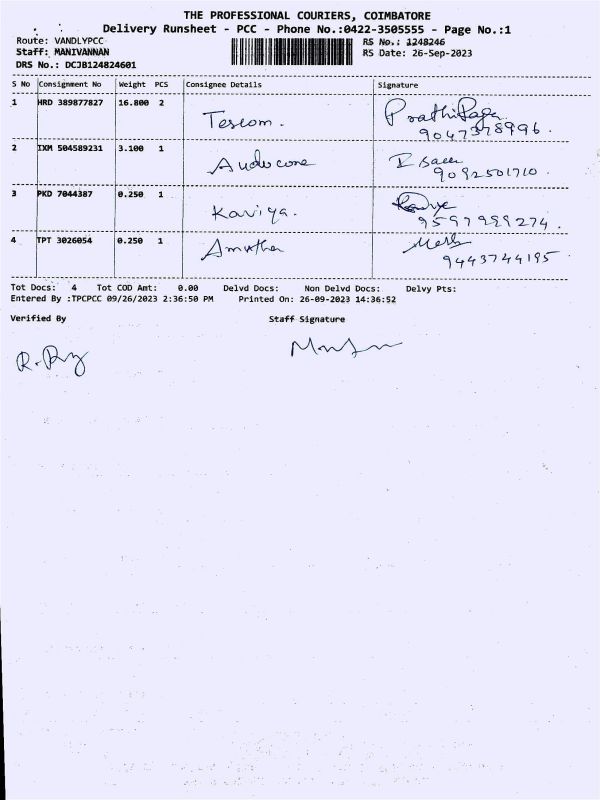 THE PROFESSIONAL COURIERS, COIMBATORE
Delivery Runsheet - PCC - Phone No.:0422-3505555 - Page No.:1
Route: VANDLYPCC RS No.: 1248246
Staff: MANIVANNAN RS Date: 26-Sep-2023
DRS No.: DCJB124824601
S No Consignment No Weight PCS Consignee Details Signature
1 HRD 389877827 16.800 2
Tescom. Prathipaga
9047378996.
2 IXM 504589231 3.100 1
Audocone
9092501710.
3 PKD 7044387 0.250 1
Kaviya.
9597999274.
4 TPT 3026054 0.250 1
Amutha
9443744195
Tot Docs: 4 Tot COD Amt: 0.00 Delvd Docs: Non Delvd Docs: Delvy Pts:
Entered By :TPCPCC 09/26/2023 2:36:50 PM Printed On: 26-09-2023 14:36:52
Verified By Staff Signature